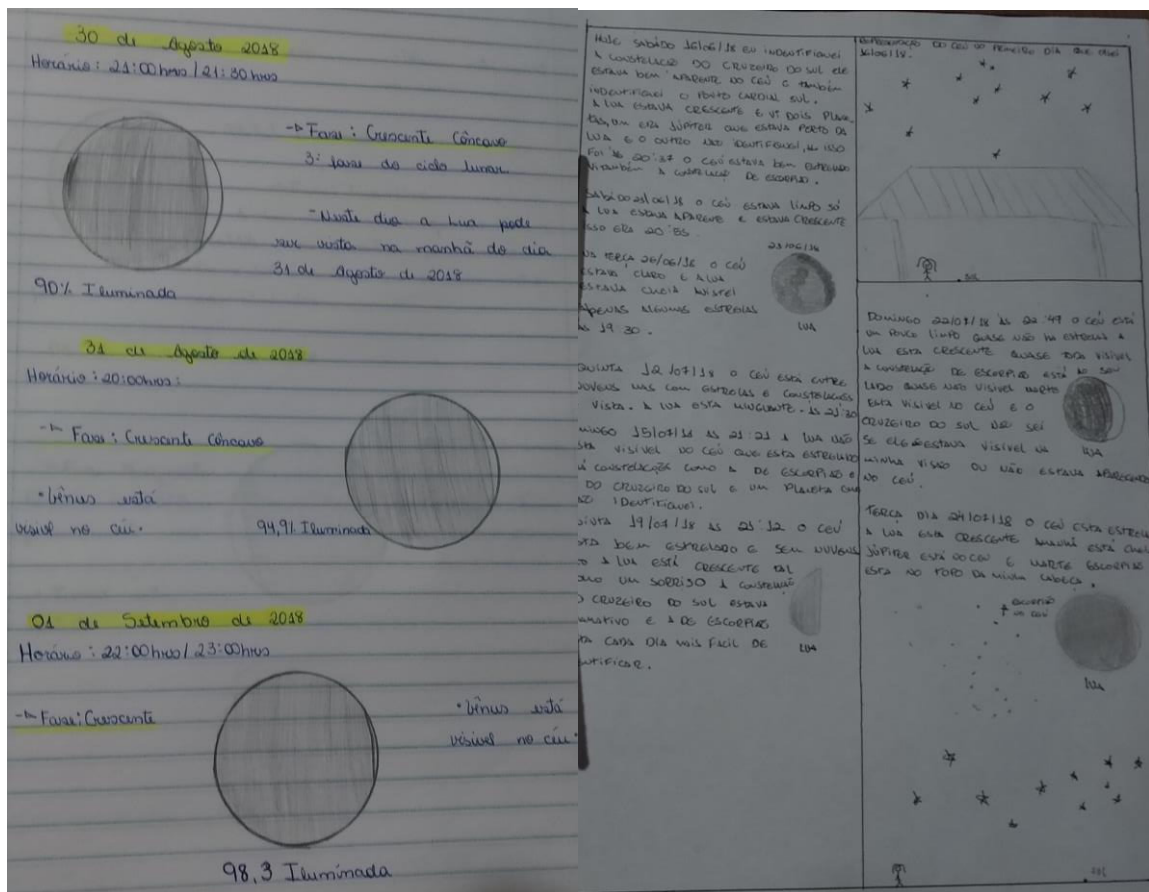 30 de Agosto 2018
Horário: 21:00hrs / 21:30hrs
-> Fase: Crescente Côncavo
3ª fase do ciclo lunar
- Neste dia a Lua pode
ser vista na manhã do dia
31 de Agosto de 2018
90% Iluminada
31 de Agosto de 2018
Horário: 20:00hrs:
-> Fase: Crescente Côncavo
• Vênus está
vísivel no céu.
94,9% Iluminada
01 de Setembro de 2018
Horário: 22:00hrs / 23:00hrs
-> Fase: Crescente
• Vênus está
vísivel no céu.
98,3 Iluminada
HOJE SABÁDO 16/06/18 EU INDENTIFIQUEI
A CONSTELAÇÃO DO CRUZEIRO DO SUL ELE
ESTAVA BEM APARENTE DO CEÚ E TAMBÉM
INDENTIFIQUEI O PONTO CARDIAL SUL.
A LUA ESTAVA CRESCENTE E VI DOIS
ERA JÚPITER QUE ESTAVA PERTO DA
LUA E O OUTRO NÃO IDENTIFIQUEI, ISSO
FOI ÀS 20:37 O CEÚ ESTAVA BEM ESTRELADO
VI TAMBÉM A CONSTELAÇÃO DE ESCORPIÃO.
O CEÚ ESTAVA LIMPO SÓ
A LUA ESTAVA APARENTE E ESTAVA CRESCENTE
ISSO ERA 20:55.
23/06/18
TERÇA 26/06/18 O CEÚ
ESTAVA CLARO E A LUA
ESTAVA CHEIA AVISTEI
APENAS ALGUMAS ESTRELAS
ÀS 19:30.
LUA
QUINTA 12/07/18 O CEÚ ESTÁ ENTRE
NUVENS MAS COM ESTRELAS E CONSTELAÇÕES
VISTA. A LUA ESTA MINGUANTE. ÀS 21:30
15/07/18 ÀS 21:21 A LUA NÃO
VISÍVEL DO CEÚ QUE ESTA ESTRELADO
CONSTELAÇÕES COMO A DE ESCORPIÃO E
DO CRUZEIRO DO SUL E UM PLANETA QUE
IDENTIFIQUEI.
19/07/18 ÀS 21:12 O CEÚ
BEM ESTRELADO E SEM NUVENS
A LUA ESTÁ CRESCENTE TAL
UM SORRISO A CONSTELAÇÃO
CRUZEIRO DO SUL ESTAVA
E A DE ESCORPIÃO
CADA DIA MAIS FACIL DE
LUA
REPRESENTAÇÃO DO CEÚ DO PRIMEIRO DIA QUE
16/06/18.
SUL
DOMINGO 22/07/18 ÀS 22:47 O CEÚ ESTÁ
UM POUCO LIMPO QUASE NÃO HÁ ESTRELAS A
LUA ESTA CRESCENTE QUASE TODA VISÍVEL
A CONSTELAÇÃO DE ESCORPIÃO ESTÁ AO SEU
LADO QUASE NÃO VISÍVEL MARTE
ESTA VISIVEL NO CEÚ E O
CRUZEIRO DO SUL NÃO SEI
SE ELE ESTAVA VISÍVEL NA
MINHA VISÃO OU NÃO ESTAVA APARECENDO
NO CEÚ.
LUA
TERÇA DIA 24/07/18 O CEÚ ESTA
A LUA ESTA CRESCENTE AMANHÃ ESTÁ
JÚPITER ESTÁ DO CEÚ E MARTE ESCORPIÃO
ESTA NO TOPO DA MINHA CABEÇA.
ESCORPIÃO
NO CEÚ
LUA
SUL